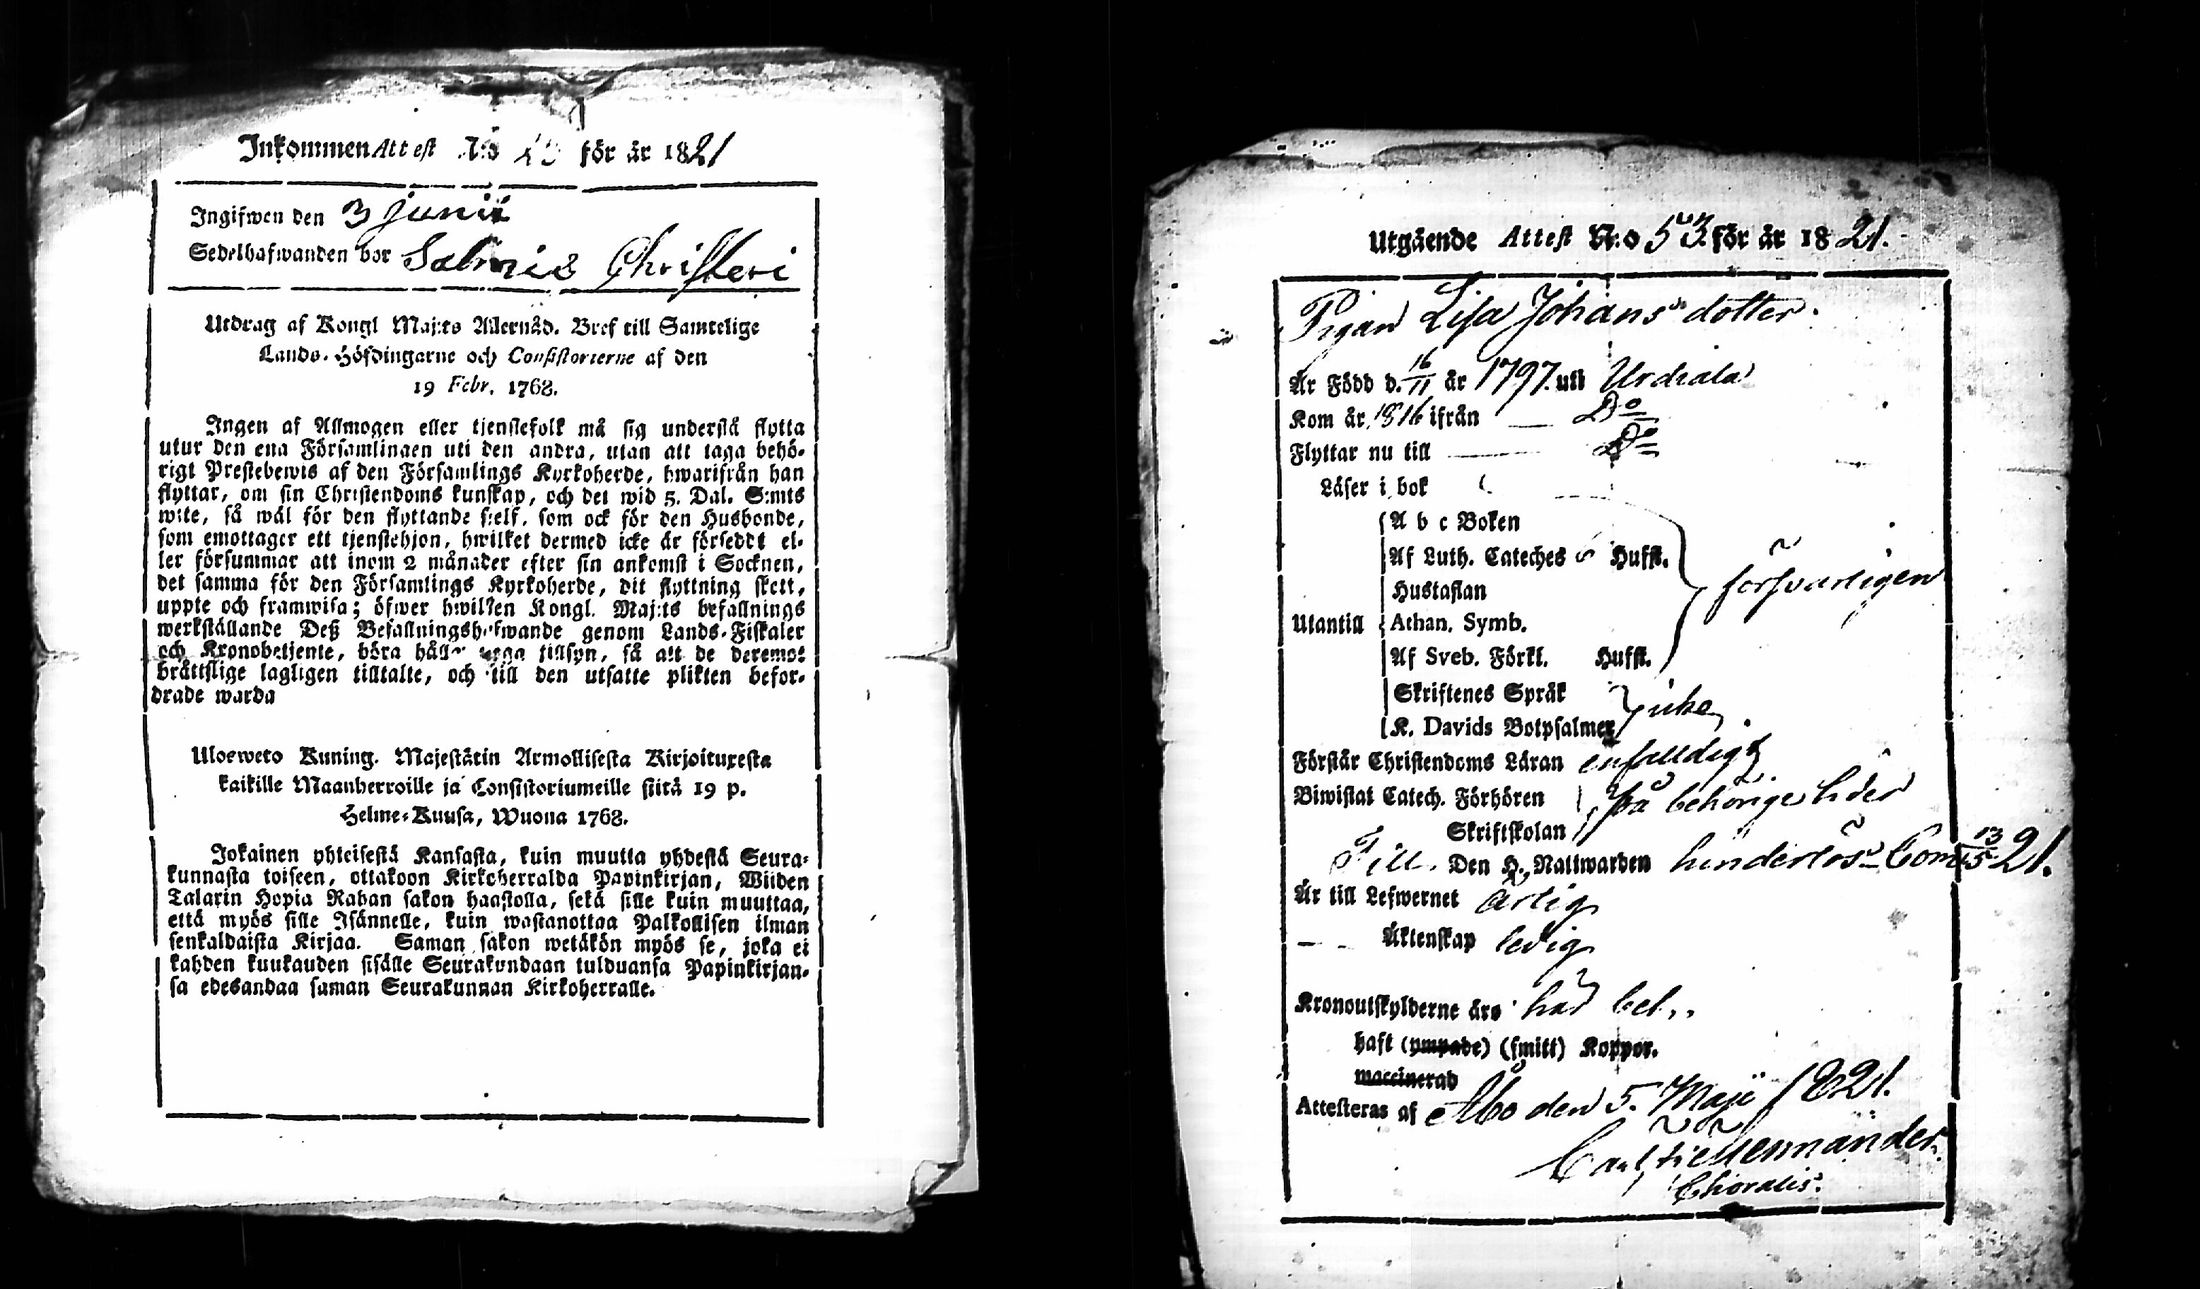 Inkommen Attest N:o för år 1821
Ingifwen den 3 Junii
Sedelhafwanden bor Salmis Christeri
Utdrag af Kongl Maj:ts Allernåd. Bref till Samtelige
Lands-Höfdingarne och Consistorierne af den
19 Febr. 1768.
Ingen af Allmogen eller tjenstefolk må sig understå flytta
utur den ena Församlingen uti den andra, utan att taga behö-
rigt Prestebewis af den Församlings Kyrkoherde, hwarifrån han
flyttar, om sin Christendoms kunskap, och det wid 5. Dal. S:mts
wite, så wäl för den flyttande sjelf, som ock för den Husbonde,
som emottager ett tjenstehjon, hwilket dermed icke är försedt el-
ler försummar att inom 2 månader efter sin ankomst i Socknen,
det samma för den Församlings Kyrkoherde, dit flyttning skett,
uppte och framwisa; öfwer hwilken Kongl. Maj:ts befallnings
werkställande Deß Befallningshafwande genom Lands-Fiskaler
och Kronobetjente, böra hålla noga tillsyn, så att de deremot
bråttslige lagligen tilltalte, och till den utsatte plikten befor-
drade warda
Ulosweto Kuning. Majestätin Armollisesta Kirjoituxesta
kaikille Maanherroille ja Consistoriumeille siitä 19 p.
Helme-Kuusa, Wuona 1768.
Jokainen yhteisestä Kansasta, kuin muutta yhdestä Seura-
kunnasta toiseen, ottakoon Kirkoherralda Papinkirjan, Wiiden
Talarin Hopia Rahan sakon haastolla, sekä sille kuin muuttaa,
että myös sille Isännelle, kuin wastanottaa Palkollisen ilman
senkaldaista Kirjaa. Saman sakon wetäkön myös se, joka ei
kahden kuukauden sisälle Seurakundaan tulduansa Papinkirjan-
sa edesandaa saman Seurakunnan Kirkoherralle.
Utgående Attest Nr:o 53 för år 1821.
Pigan Lisa Johans dotter.
Är Född d. 16/11 år 1797. uti Urdiala
Kom år 1816 ifrån — Do
Flyttar nu till — Do
Läser i bok
A b c Boken
Af Luth. Cateches 6 Hufst.
Hustaflan
försvarligen
Utantill Athan. Symb.
Af Sveb. Förkl. Hufst.
Skriftenes Språk
K. Davids Botpsalmer icke
Förstår Christendoms Läran enfalldigt
Biwistat Catech. Förhören på behörige tider
Skriftskolan
Till Den H. Nattwarden hinderlös Com. 13/5 21.
Är till Lefwernet ärlig
— — Äktenskap ledig
Kronoutskylderne äro här bet..
haft (ympade) (smitt) Koppor.
waccinerad
Attesteras af Åbo den 5. Maji 1821.